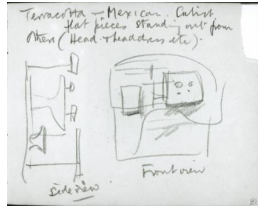 Terracotta – Mexican. Cubist
flat pieces standing out from
others (Head & headdress etc).
Side view
Front view